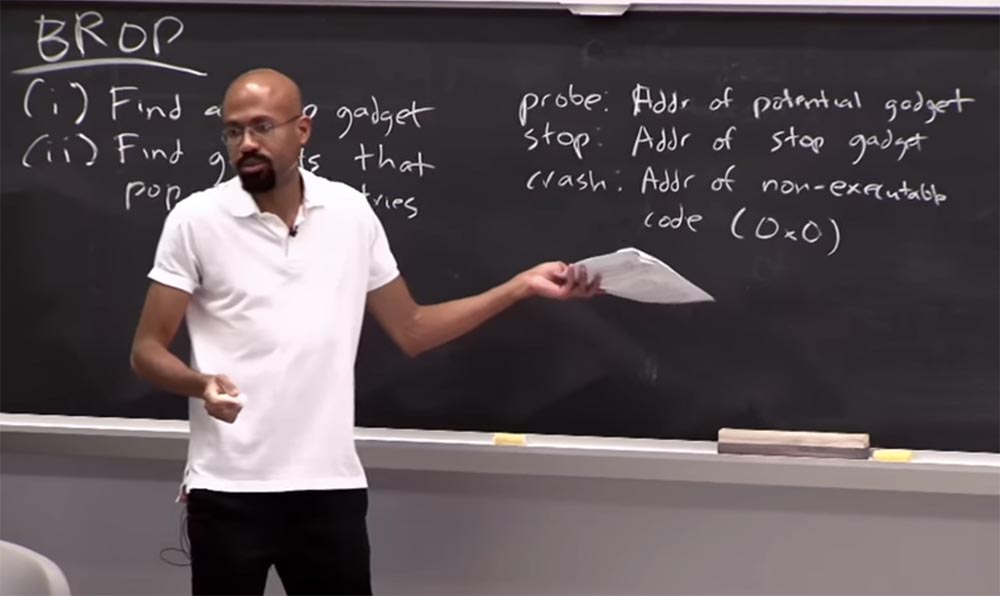 BROP
(i) Find a gadget
(ii) Find that
pop
probe: Addr of potential gadget
stop: Addr of stop gadget
crash: Addr of non-executable
code (0x0)